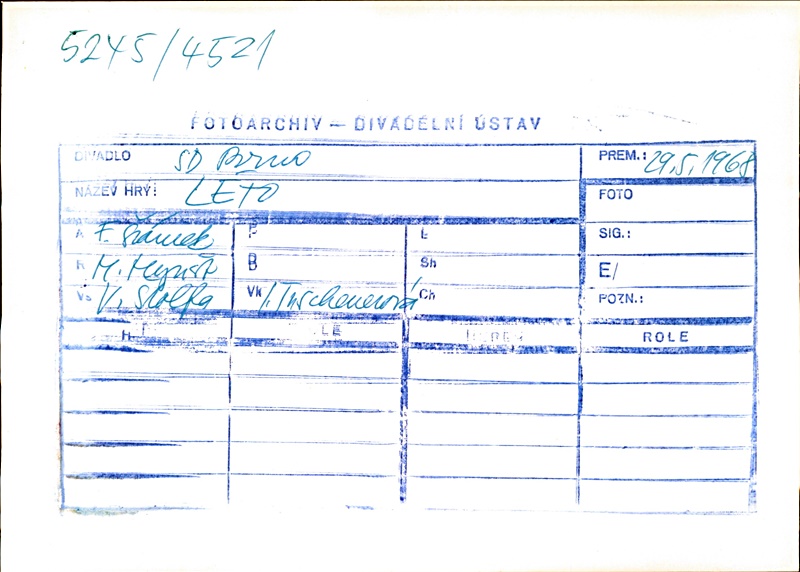 5245/4521
FOTOARCHIV – DIVADELNÍ ÚSTAV
DIVADLO SD Brno PREM.: 29.5.1968
NÁZEV HRY: LETO FOTO
A F. Šrámek P L SIG.:
R M. B Sh E/
Vs V. Štolfa Vk Ch POZN.:
ROLE